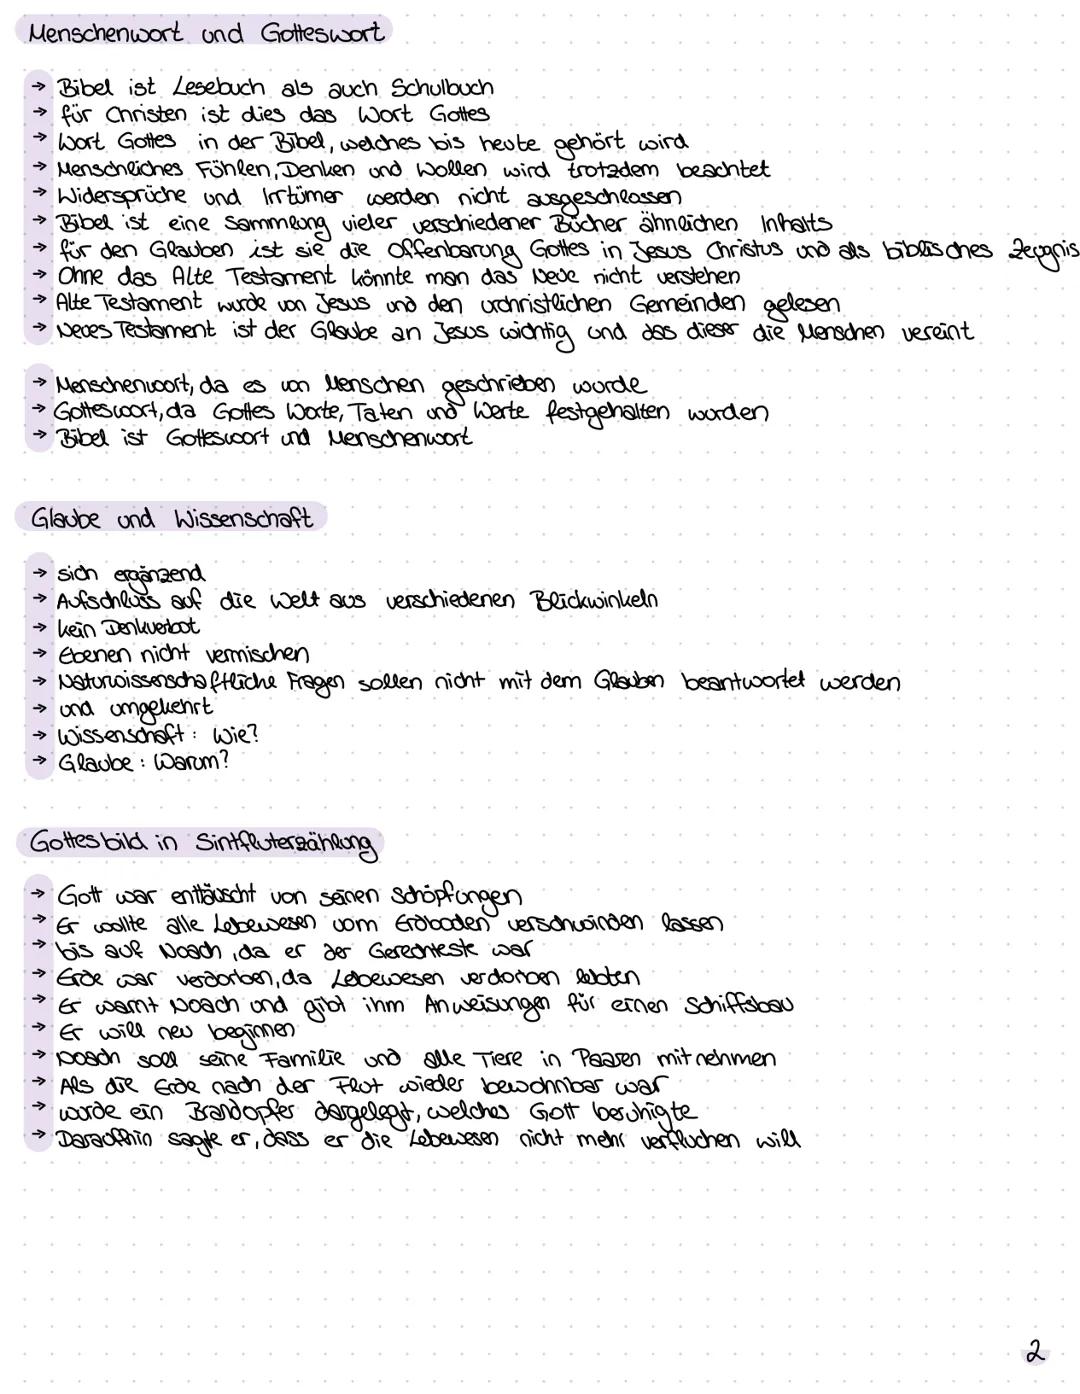 Menschenwort und Gotteswort
→ Bibel ist Lesebuch als auch Schulbuch
→ für Christen ist dies das Wort Gottes
→ Wort Gottes in der Bibel, welches bis heute gehört wird
→ Menschliches Fühlen, Denken und Wollen wird trotzdem beachtet
→ Widersprüche und Irrtümer werden nicht ausgeschlossen
→ Bibel ist eine Sammlung vieler verschiedener Bücher ähnlichen Inhalts
→ für den Glauben ist sie die Offenbarung Gottes in Jesus Christus und als biblisches Zeugnis
→ Ohne das Alte Testament könnte man das Neue nicht verstehen
→ Alte Testament wurde von Jesus und den urchristlichen Gemeinden gelesen
→ Neues Testament ist der Glaube an Jesus wichtig und das dieser die Menschen vereint
→ Menschenwort, da es von Menschen geschrieben wurde
→ Gotteswort, da Gottes Worte, Taten und Werte festgehalten wurden
→ Bibel ist Gotteswort und Menschenwort
Glaube und Wissenschaft
→ sich ergänzend
→ Aufschluss auf die Welt aus verschiedenen Blickwinkeln
→ kein Denkverbot
→ Ebenen nicht vermischen
→ Naturwissenschaftliche Fragen sollen nicht mit dem Glauben beantwortet werden
→ und umgekehrt
→ Wissenschaft: Wie?
→ Glaube: Warum?
Gottesbild in Sintfluterzählung
→ Gott war enttäuscht von seinen Schöpfungen
→ Er wollte alle Lebewesen vom Erdboden verschwinden lassen
→ bis auf Noach, da er der Gerechteste war
→ Erde war verdorben, da Lebewesen verdorben lebten
→ Er warnt Noach und gibt ihm Anweisungen für einen Schiffsbau
→ Er will neu beginnen
→ Noach soll seine Familie und alle Tiere in Paaren mitnehmen
→ Als die Erde nach der Flut wieder bewohnbar war
→ wurde ein Brandopfer dargelegt, welches Gott beruhigte
→ Daraufhin sagte er, dass er die Lebewesen nicht mehr verfluchen will
2